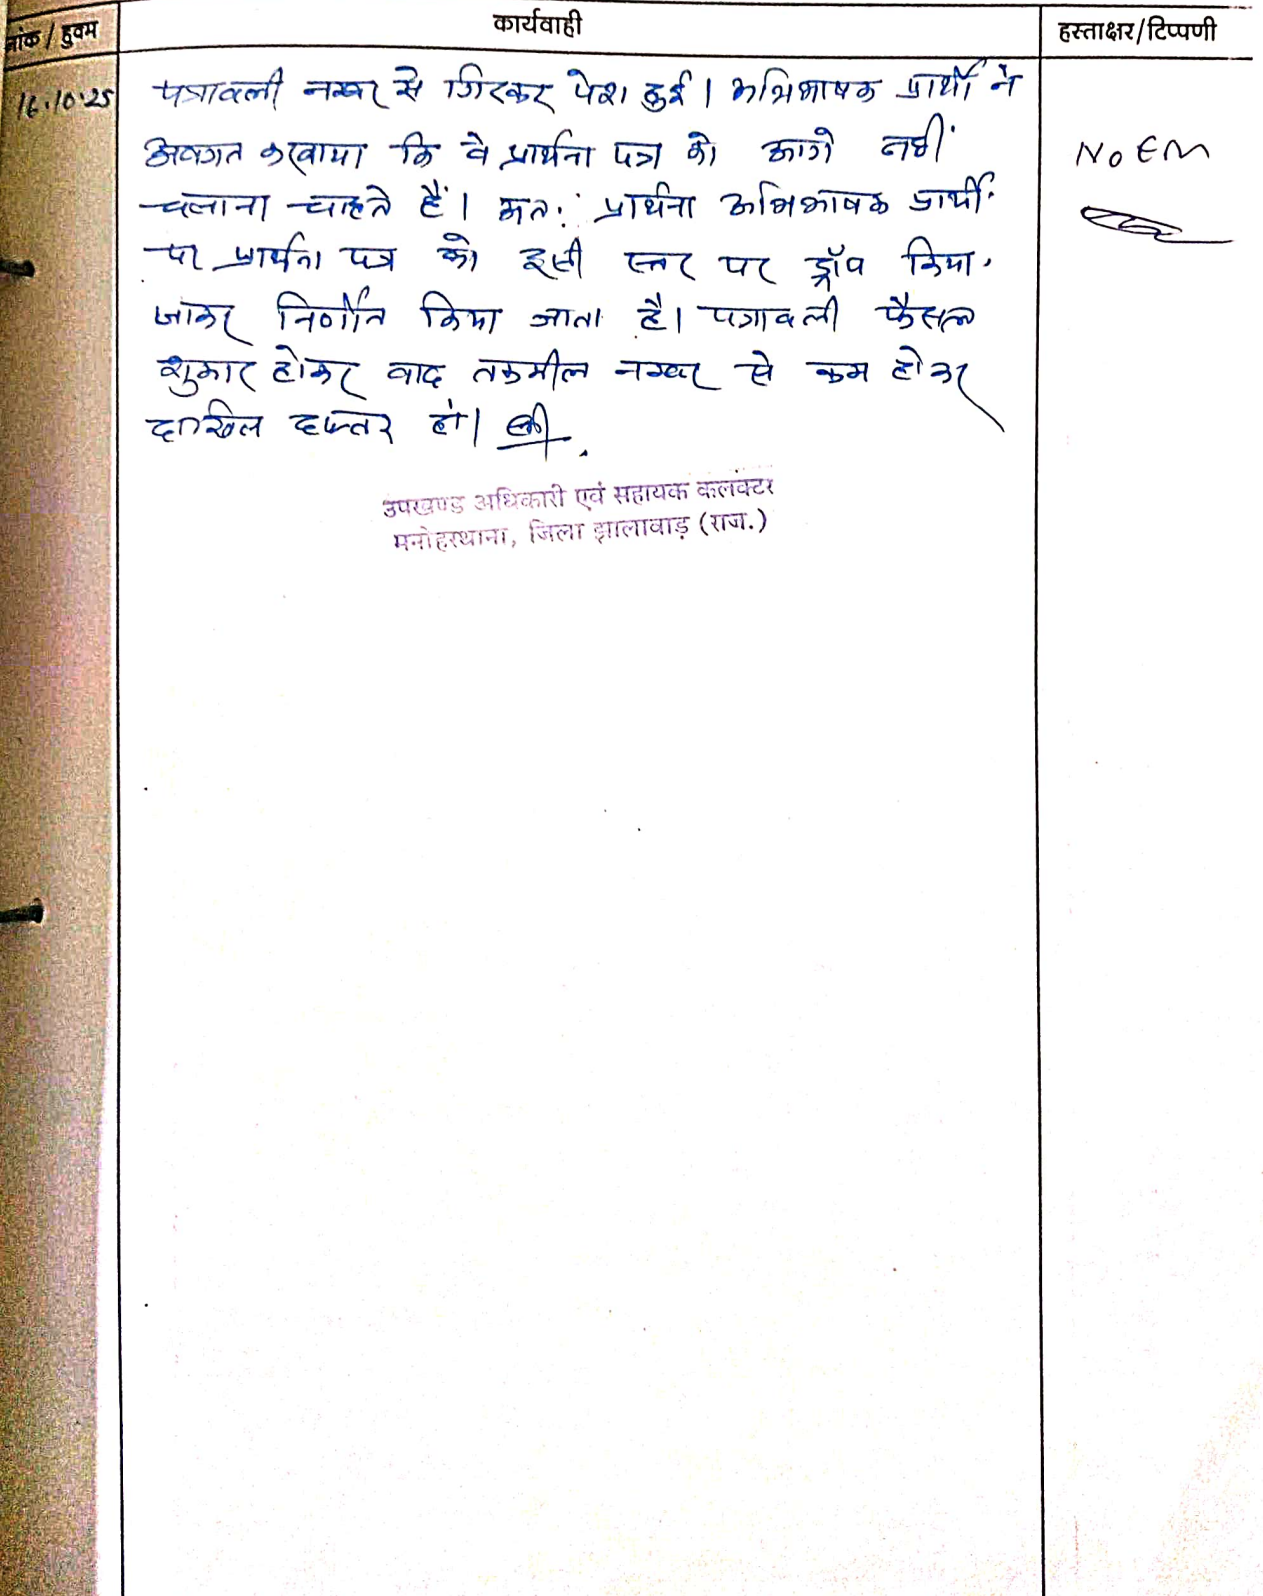 नांक / हुक्म	कार्यवाही	हस्ताक्षर/टिप्पणी
16.10.25
पत्रावली नम्बर से गिरकर पेश हुई। अभिभाषक प्रार्थी ने
अवगत करवाया कि वे प्रार्थना पत्र को आगे नहीं
चलाना चाहते हैं। अतः प्रार्थना अभिभाषक प्रार्थी
पर प्रार्थना पत्र को इसी स्तर पर ड्रॉप किया
जाकर निर्णीत किया जाता है। पत्रावली फैसल
शुमार होकर बाद तकमील नम्बर से कम होकर
दाखिल दफ्तर हो।
उपखण्ड अधिकारी एवं सहायक कलक्टर
मनोहरथाना, जिला झालावाड़ (राज.)